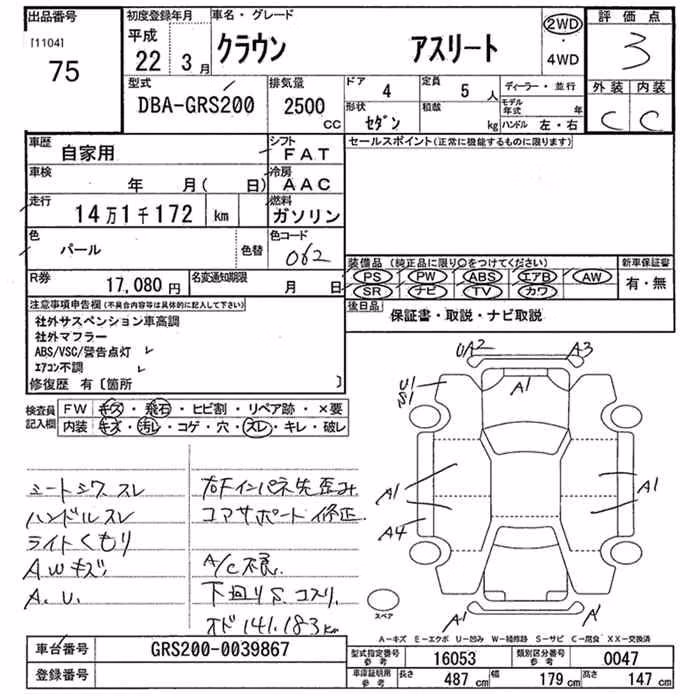 出品番号 初度登録年月 車名・グレード 評価点
[1104] 平成
75 22 3月 クラウン アスリート 2WD ・ 4WD 3
型式 排気量 ドア 4 定員 5人 ディーラー・並行 外装 内装
DBA-GRS200 2500 CC 形状 セダン 積載 kg モデル年式 年 C C
ハンドル 左・右
車歴 自家用 シフト FAT セールスポイント(正常に機能するものに限ります)
車検 年 月( 日) 冷房 AAC
走行 14万1千172 km 燃料 ガソリン
色 パール 色替 色コード 062
装備品 (純正品に限り○をつけてください) 新車保証書
PS PW ABS エアB AW 有・無
SR ナビ TV カワ
R券 17,080円 名変通知期限 月 日
後日品 保証書・取説・ナビ取説
注意事項申告欄(不具合内容等は具体的に記入して下さい)
社外サスペンション車高調
社外マフラー
ABS/VSC/警告点灯
エアコン不調
修復歴 有〔箇所 〕
検査員記入欄 FW キズ・飛石・ヒビ割・リペア跡・×要
内装 キズ・汚レ・コゲ・穴・スレ・キレ・破レ
UA2 A3
A1
U1
S1
A1 A1
A4
A1 A1
スペア
シートシワ スレ
ハンドルスレ
ライトくもり
AWキズ
A.U.
右Fインパネ先歪み
コアサポート修正
A/C不良
下廻りS.コスリ.
オド141.183km
A-キズ E-エクボ U-凹み W-補修跡 S-サビ C-腐食 XX-交換済
車台番号 GRS200-0039867
登録番号
型式指定番号 参考 16053 類別区分番号 参考 0047
車庫証明用 参考 長さ 487cm 幅 179cm 高さ 147cm